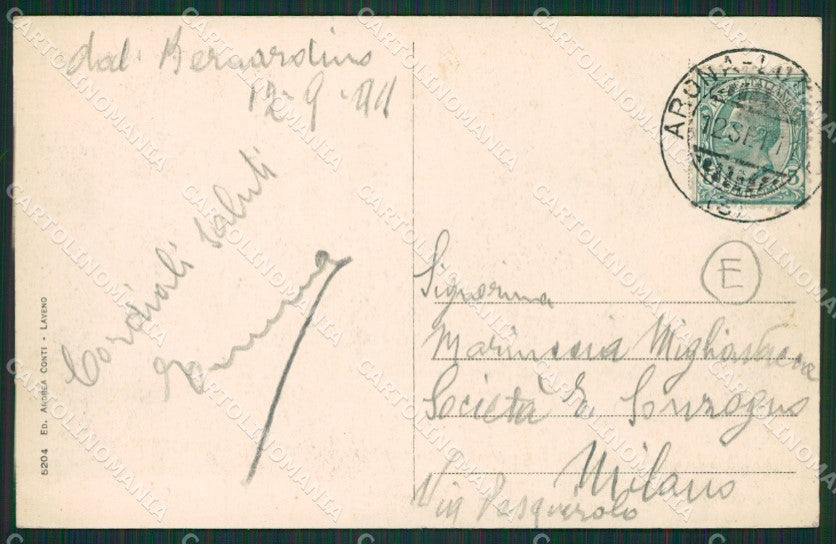 dal Bernardino
12-9-911
Cordiali saluti
Emma
5204 ED. ANDREA CONTI - LAVENO
ARONA-
12 SET.11
(3)
E
Signorina
Migliavacca
Società
Milano
Via Pasquirolo
CARTOLINOMANIA